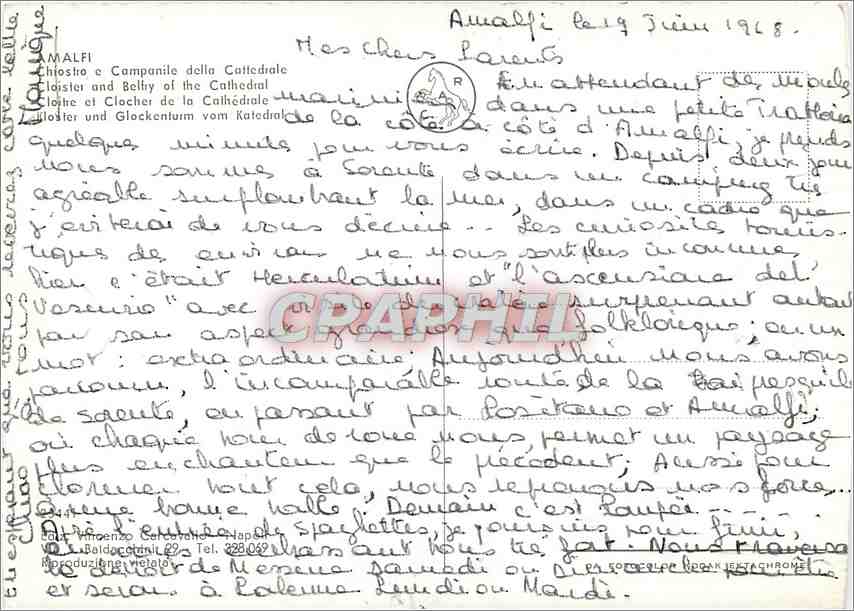 Amalfi le 19 Juin 1968.
Mes Chers Parents
AMALFI
Chiostro e Campanile della Cattedrale
Cloister and Belfry of the Cathedral
Cloître et Clocher de la Cathédrale
Kloster und Glockenturm vom Katedral
En attendant des moules
marinières dans une petite Trattoria
de la côte à côté d'Amalfi, je prends
quelques minutes pour vous écrire. Depuis deux jours
nous sommes à Sorente dans un camping très
agréable surplombant la mer, dans un cadre que
j'éviterai de vous décrire... Les curiosités touris-
tiques des environs ne nous sont plus inconnues
hier c'était Herculanum et "l'ascensione del
Vesuvio" avec visite du cratère surprenant autant
par son aspect grandiose que folklorique; en un
mot : extraordinaire; Aujourd'hui nous avons
parcouru, l'incomparable route de la presqu'île
de Sorente, en passant par Positano et Amalfi;
où chaque tour de roue nous permet un paysage
plus enchanteur que le précédent; Aussi pour
clôturer tout cela, nous reprenons nos forces...
à une bonne halte; Demain c'est Pompéi....
Après l'entrée de spaghettis, je poursuis pour finir,
en vous embrassant tous très fort. Nous traversons
le détroit de Messine Samedi ou Dimanche
et serons à Palerme Lundi ou Mardi.
Ediz. Vincenzo Carcavallo - Napoli
Tel. 328.069
Riproduzione vietata
FOTOCOLOR KODAK EKTACHROME
En espérant que vous recevrez cette lettre
Ciao à tous
Monique
CPAPHIL